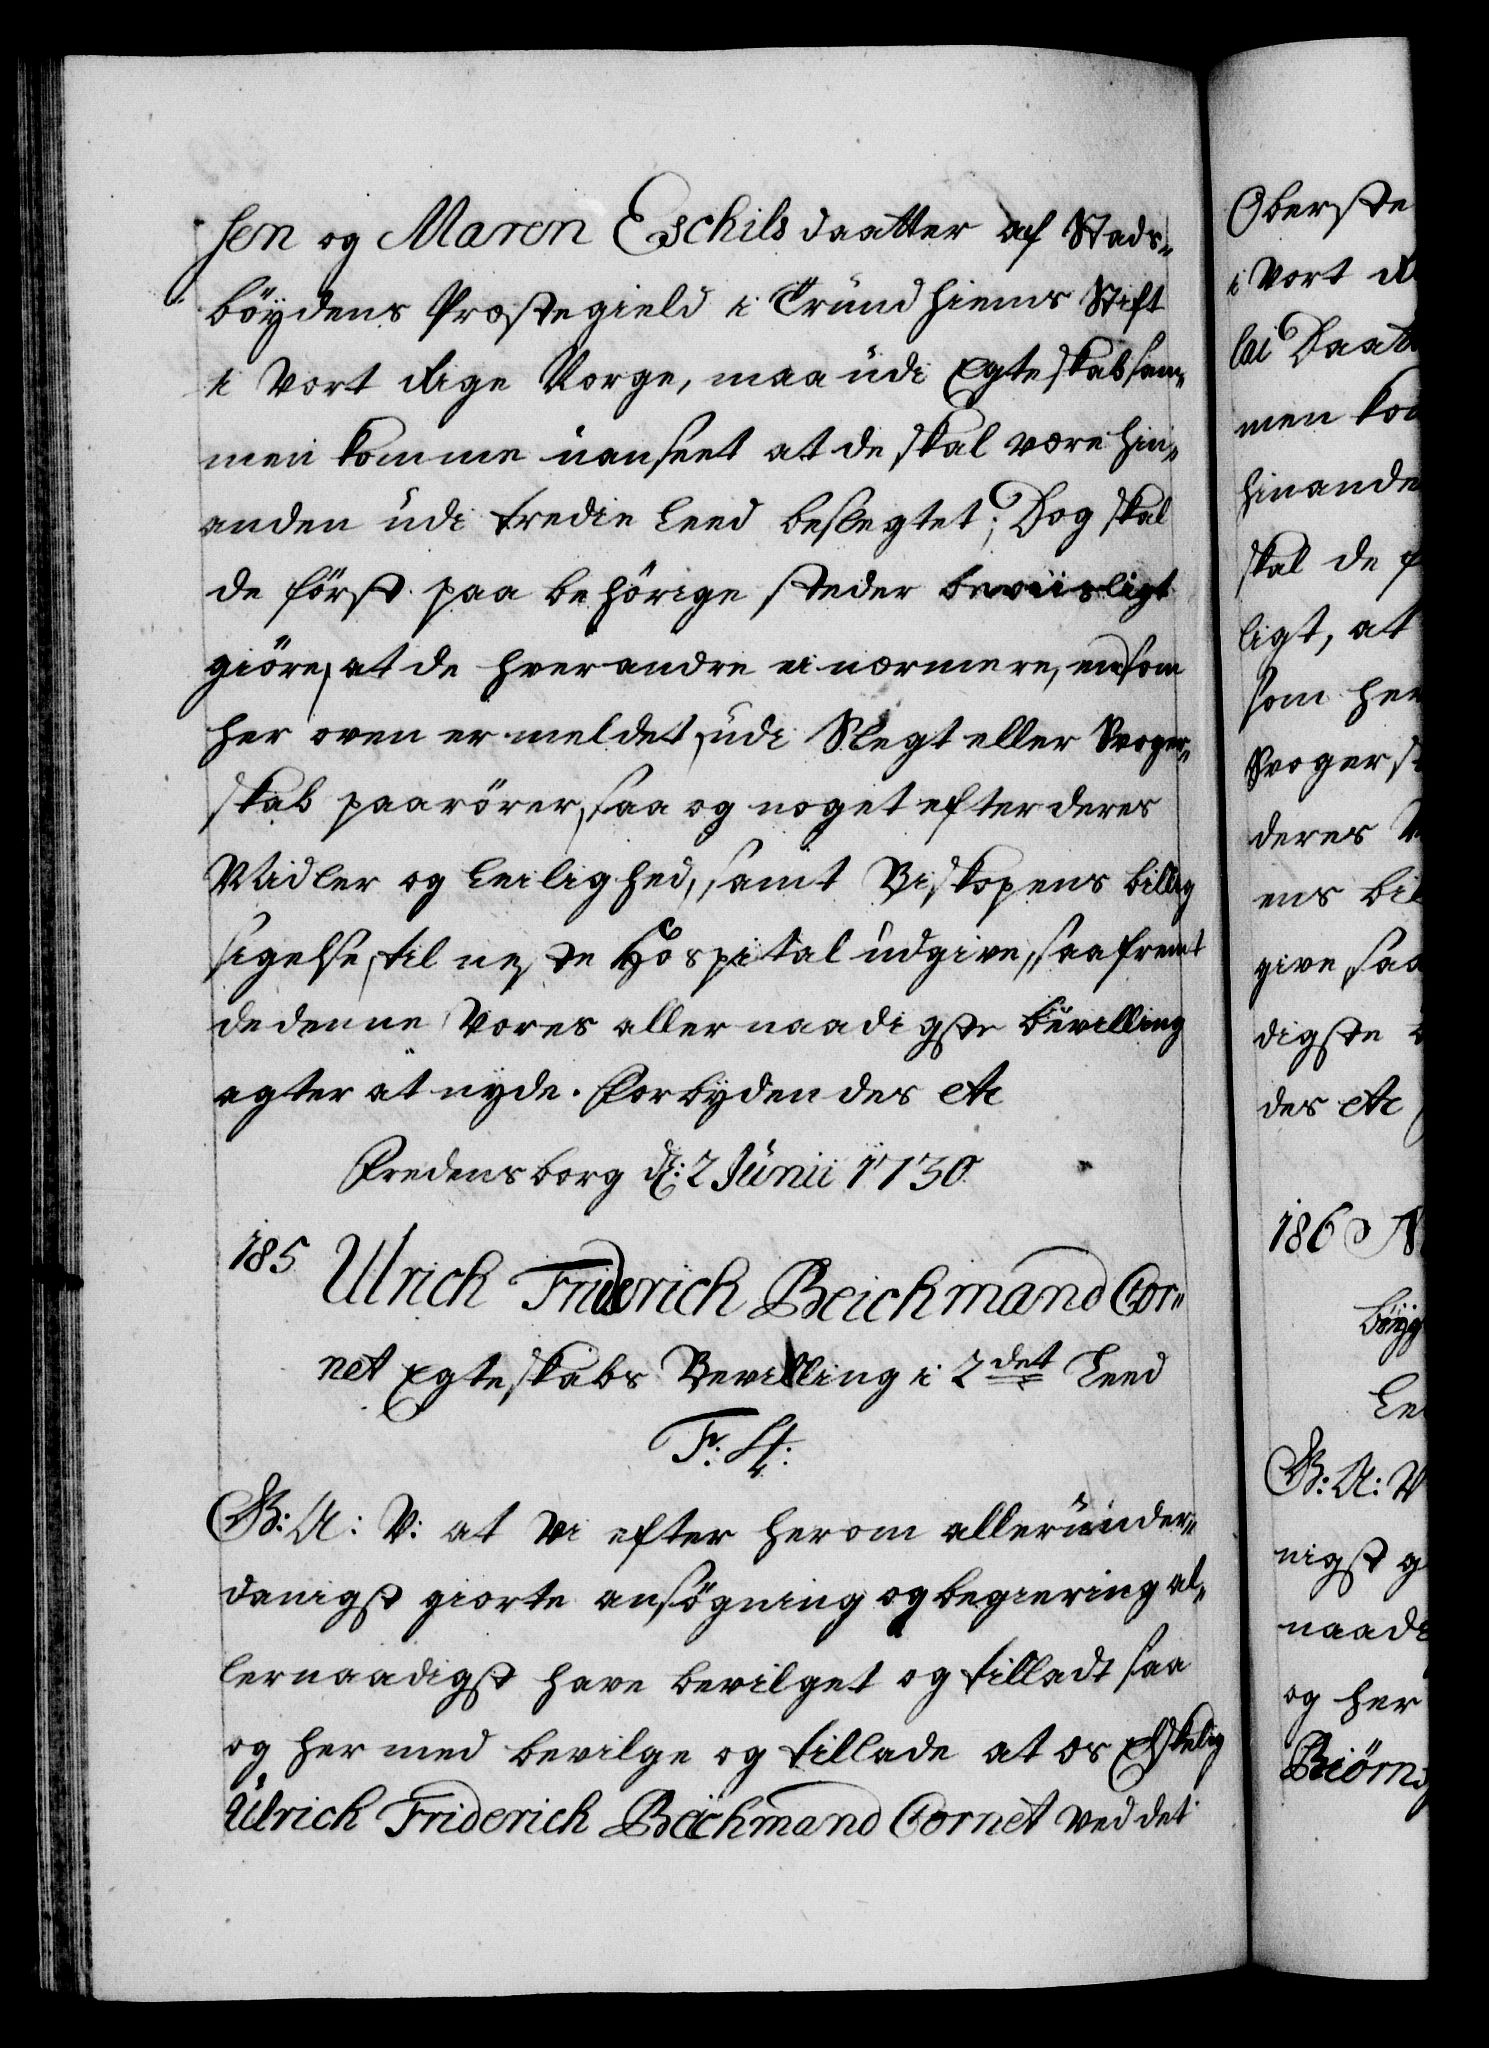 sen og Maren Eschils daatter af Stads-
böydens Præstegield i Tründhiems Stift
i Vort Rige Norge, maa üdi Egteskab sam-
men komme üanseet at de skal være hin-
anden üdi tredie Leed beslegtet; Dog skal
de först paa behörige steder beviisligt
giöre, at de hverandre ei nærmere, end som
her oven er meldet, üdi Slegt eller Svoger-
skab paarörer, saa og noget efter deres
Midler og Leilighed, samt Biskopens billig
sigelse, til neste Hospital üdgive, saafremt
de denne Vores allernaadigste Bevilling
agter at nyde. Forbydendes etc
Fredensborg d: 2 Junii 1730
185 Ulrich Friderich Beichmand Cor-
net Egteskabs Bevilling i 2det Leed
F: 4:
G: A: V: at Vi efter herom alleründer-
danigst giorte ansögning og begiering al-
lernaadigst have bevilget og tilladt saa
og hermed bevilge og tillade at os Elskelig
Ulrich Friderich Beichmand Cornet ved det
Oberste
i Vort R
lai Daatt
men kom
hinande
skal de f
ligt, at
som her
Svogersk
deres M
ens bil
give saa
digste B
des etc
186 N
böyg
Lee
G: A: V
nigst g
naadi
og her
Biörns